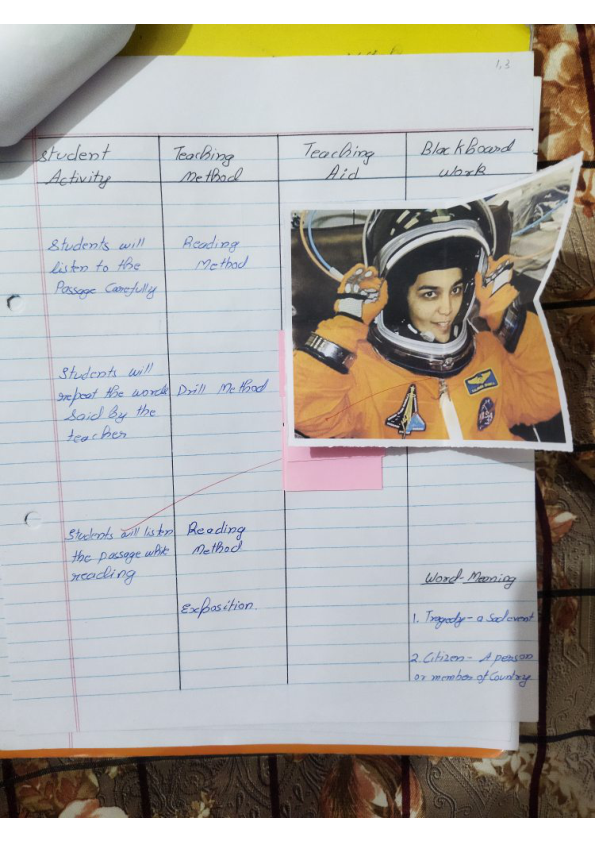 1,3
Student
Activity
Teaching
Method
Teaching
Aid
BlackBoard
work
Students will
listen to the
Passage Carefully
Reading
Method
Students will
repeat the words
Said by the
teacher
Drill Method
Students will listen
the passage while
reading
Reading
Method
Exposition
Word-Meaning
1. Tragedy - a Sad event
2. Citizen - A person
or member of Country